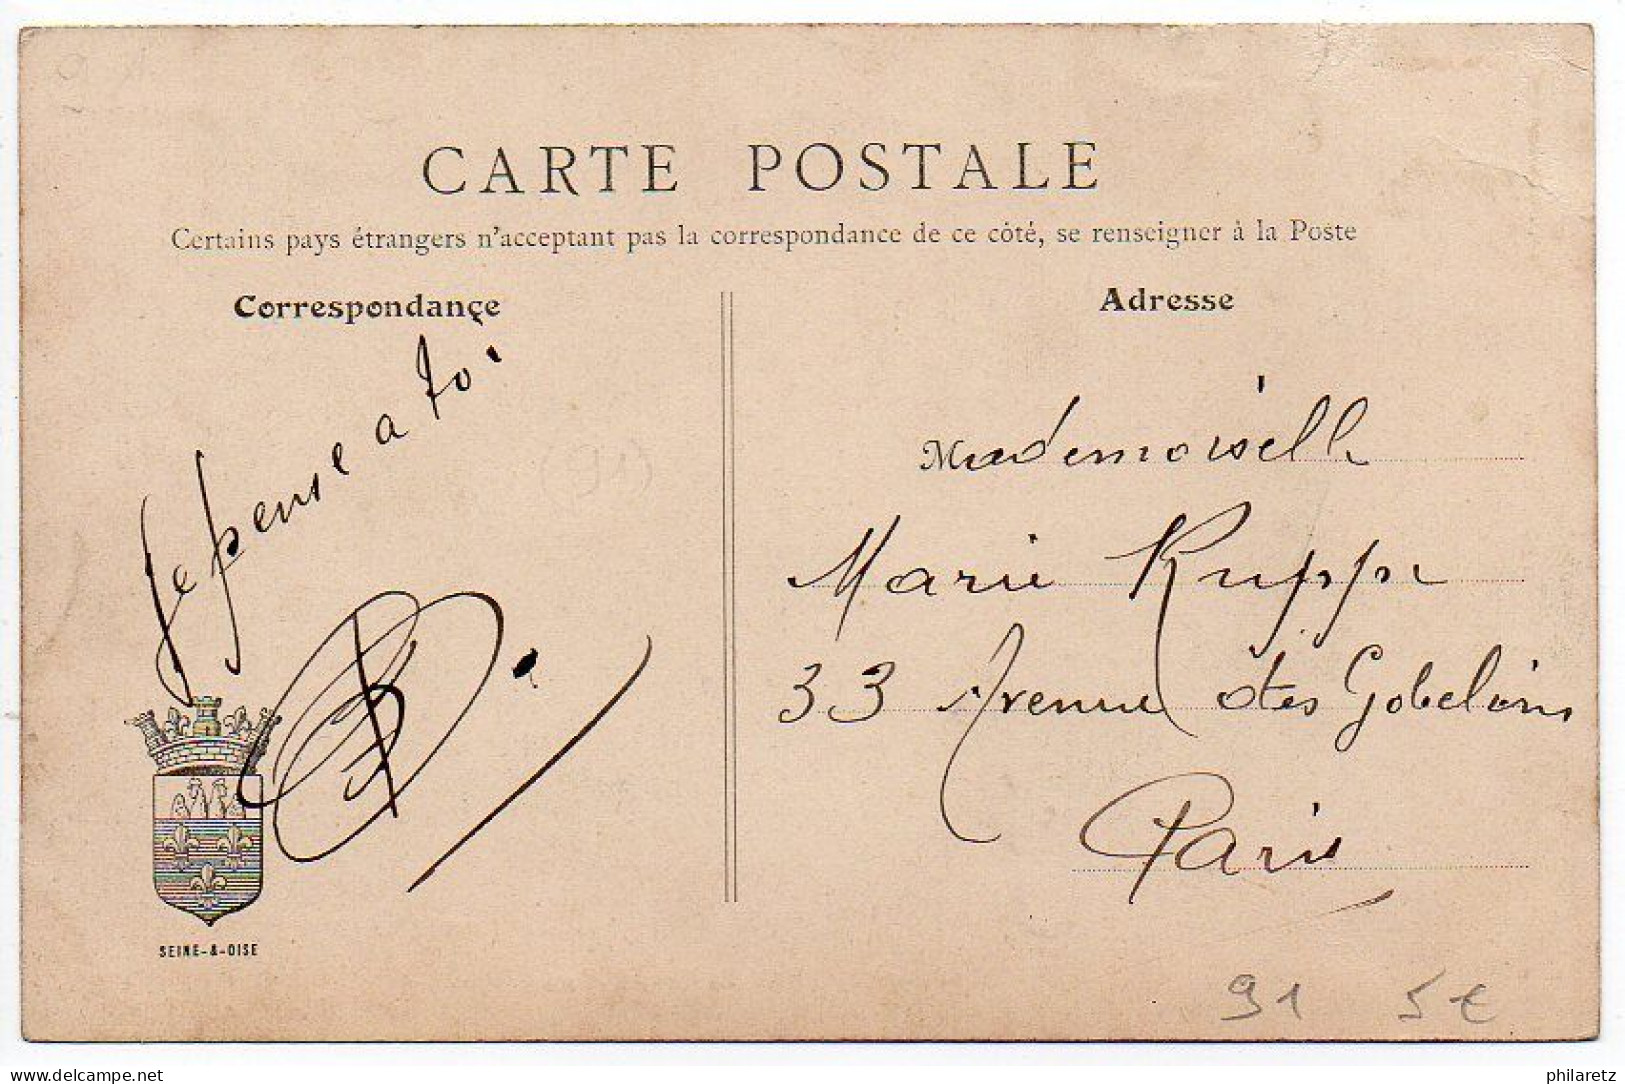 CARTE POSTALE
Certains pays étrangers n'acceptant pas la correspondance de ce côté, se renseigner à la Poste
Correspondance
Adresse
Je pense a toi.
(91)
Mademoiselle
Marie Ruppe
33 Avenue des Gobelins
Paris
SEINE-&-OISE
91 5€
www.delcampe.net
philaretz